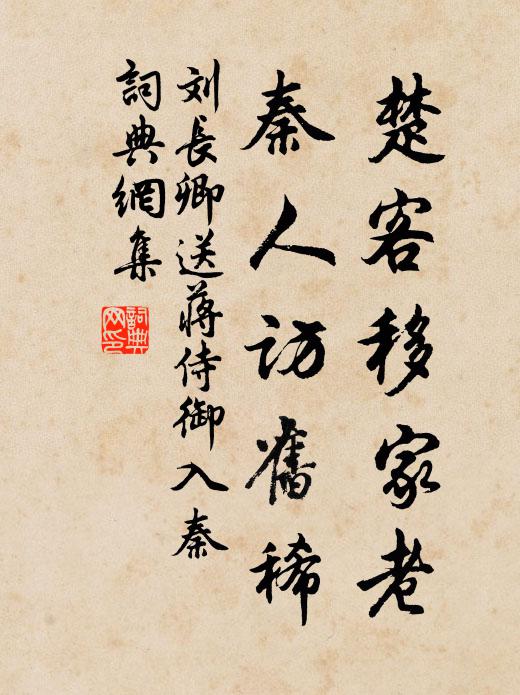 楚客移家老
秦人訪舊稀
刘長卿送蔣侍御入秦
詞典網集
詞典
网印